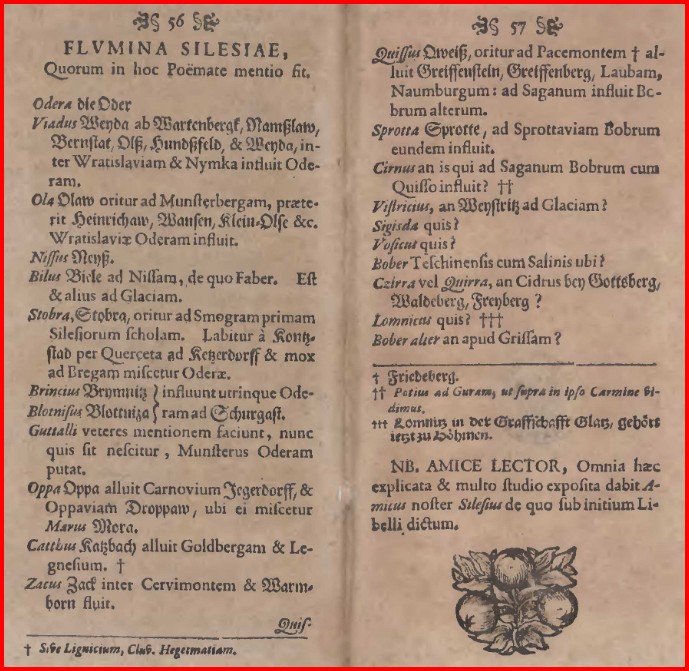 56
FLVMINA SILESIAE,
Quorum in hoc Poëmate mentio fit.
Odera die Oder
Viadus Weyda ab Wartenbergk, Namßlaw,
Bernstat, Olß, Hundßfeld, & Weyda, in-
ter Wratislaviam & Nymka influit Ode-
ram.
Ola Olaw oritur ad Munsterbergam, præte-
rit Heinrichaw, Wansen, Klein-Olse &c.
Wratislaviæ Oderam influit.
Nissus Neyß.
Bilus Biele ad Nissam, de quo Faber. Est
& alius ad Glaciam.
Stobra, Stobra, oritur ad Smogram primam
Silesiorum scholam. Labitur à Kontz-
stad per Querceta ad Ketzerdorff & mox
ad Bregam miscetur Oderæ.
Brincius Brymnitz } influunt utrinque Ode-
Blotnisius Blottniza } ram ad Schurgast.
Guttalli veteres mentionem faciunt, nunc
quis sit nescitur, Munsterus Oderam
putat.
Oppa Oppa alluit Carnovium Jegerdorff, &
Oppaviam Droppaw, ubi ei miscetur
Marus Mora.
Catthus Katzbach alluit Goldbergam & Le-
gnesium. †
Zacus Zack inter Cervimontem & Warm-
born fluit.
Quis-
† Sive Lignicium, Cluv. Hegetmatiam.
57
Quissus Qweiß, oritur ad Pacemontem † al-
luit Greiffenstein, Greiffenberg, Laubam,
Naumburgum: ad Saganum influit Bo-
brum alterum.
Sprotta Sprotte, ad Sprottaviam Bobrum
eundem influit.
Cirnus an is qui ad Saganum Bobrum cum
Quisso influit? ††
Vistricius, an Weystritz ad Glaciam?
Sigisda quis?
Vosicus quis?
Bober Teschinensis cum Salinis ubi?
Czirra vel Quirra, an Cidrus bey Gottsberg,
Waldeberg, Freyberg?
Lomnicus quis? †††
Bober alter an apud Grissam?
† Friedeberg.
†† Potius ad Guram, ut supra in ipso Carmine vi-
dimus.
††† Lomnitz in der Graffschafft Glatz, gehört
ietzt zu Böhmen.
NB. AMICE LECTOR, Omnia hæc
explicata & multo studio exposita dabit A-
micus noster Silesius de quo sub initium Li-
belli dictum.